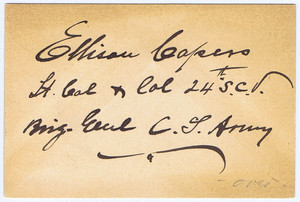 Ellison Capers
Lt. Col & Col 24th S.C.V.
Brig. Genl C. S. Army